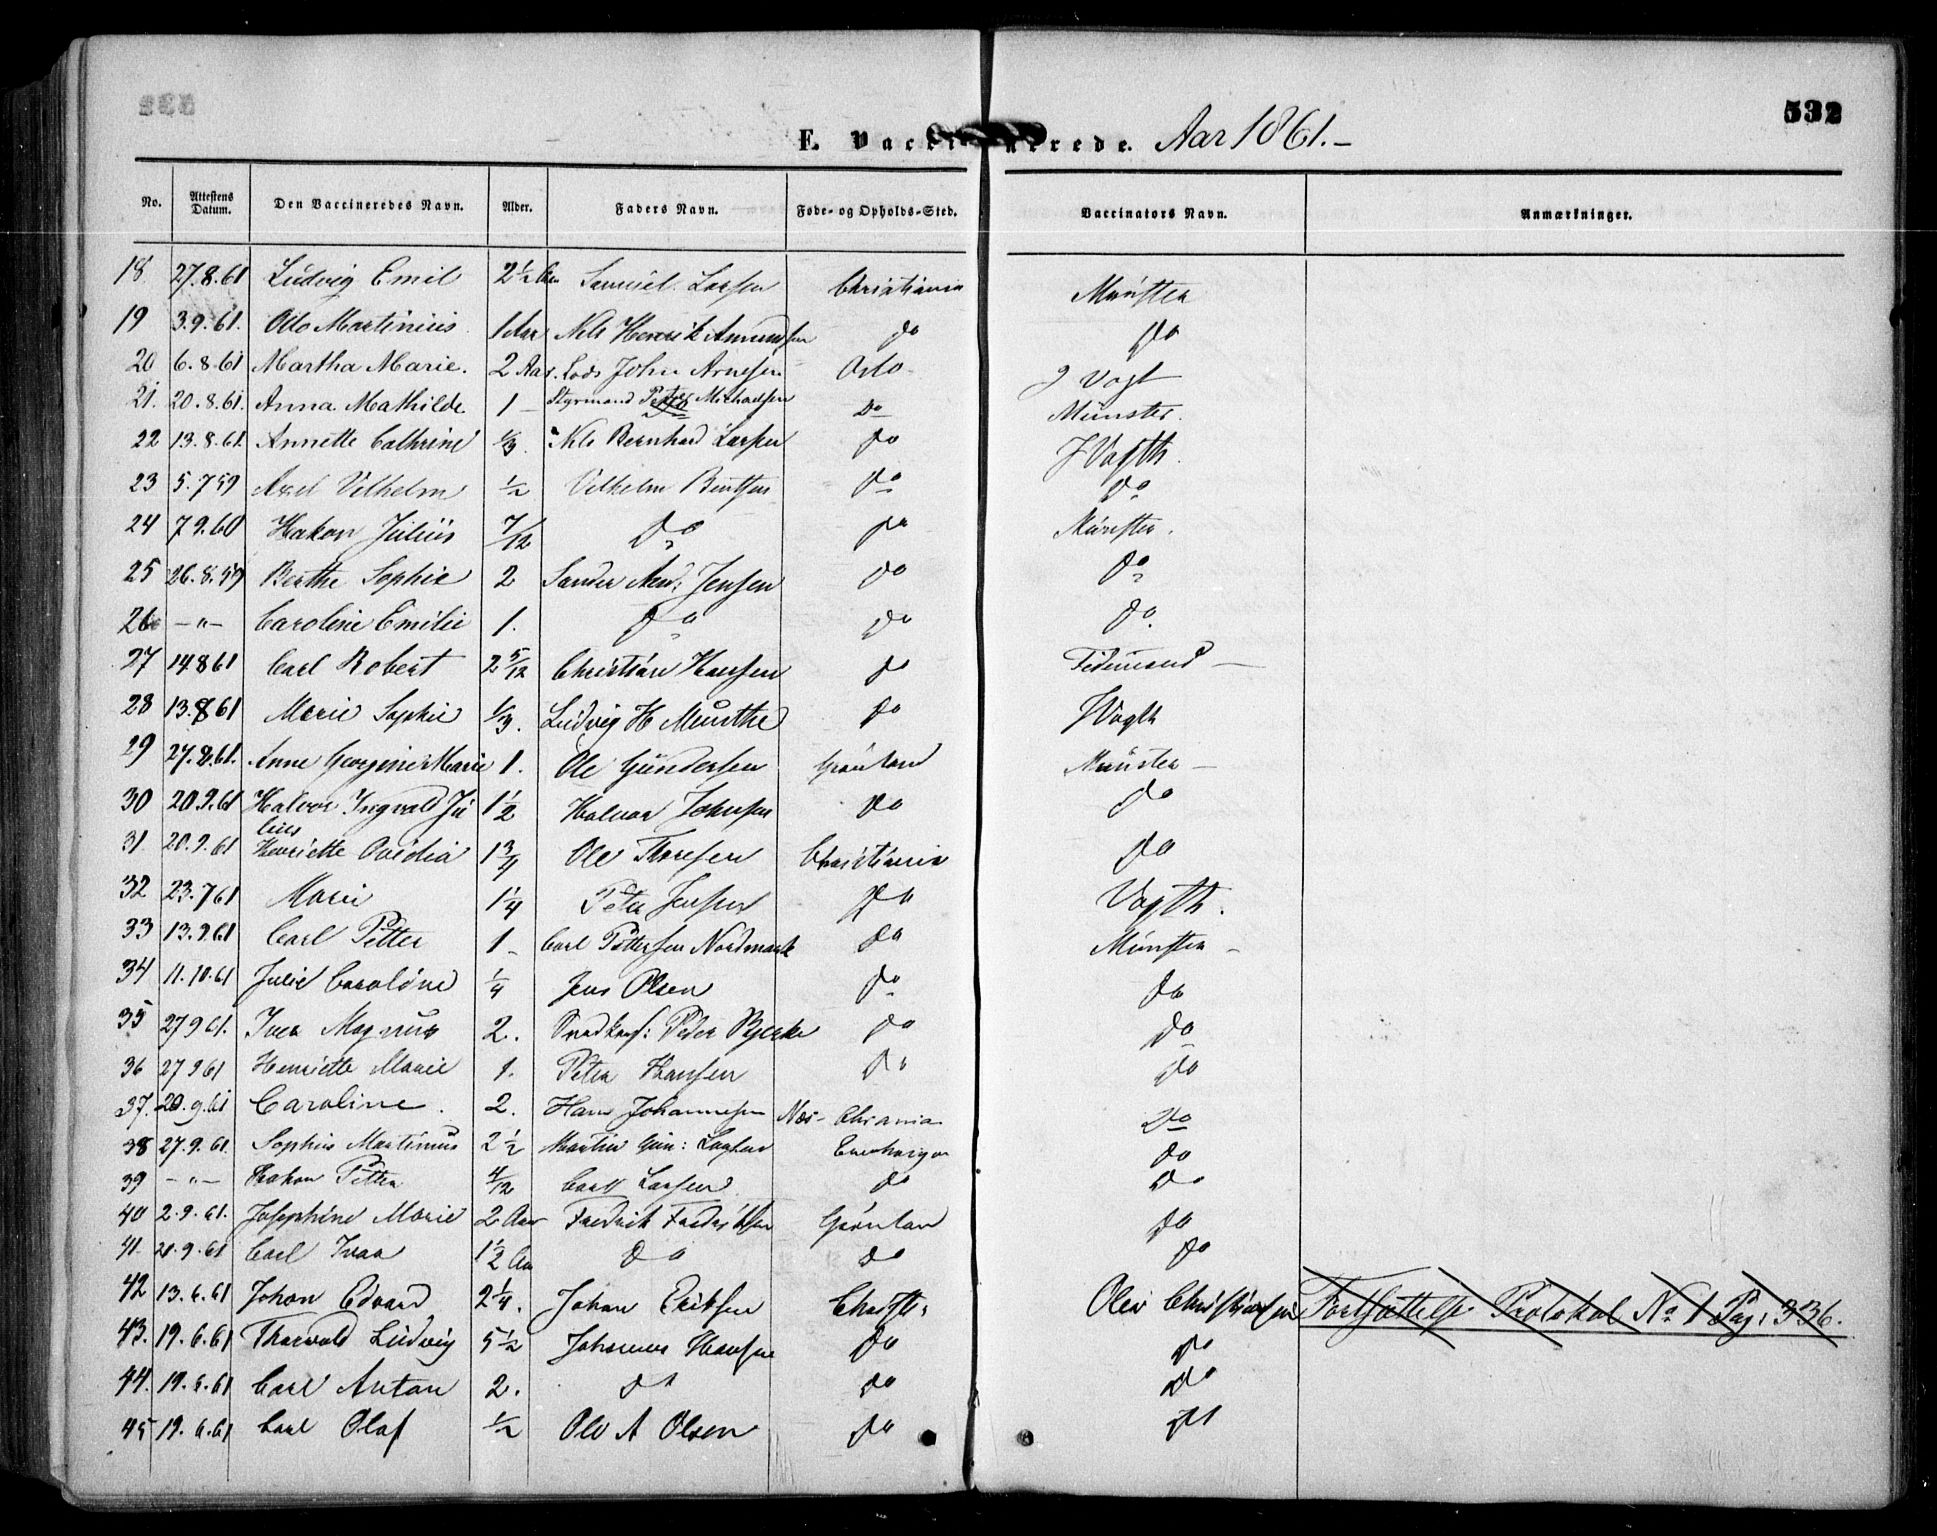 532
F. Vaccinerede. Aar 1861.-
No. Attestens Datum. Den Vaccineredes Navn. Alder. Faders Navn. Føde- og Opholds-Sted. Vaccinators Navn. Anmærkninger.
18 27.8.61 Ludvig Emil 2½ Aar Samuel Larsen Christiania Münster
19 3.9.61. Otto Martinius 1 Aar Nils Henrik Amundsen do do
20 6.8.61 Martha Marie. 2 Aar. Lods John Arnesen Oslo J Vogt
21. 20.8.61. Anna Mathilde 1 - Styrmand Peter Michaelsen Do Münster.
22 13.8.61. Annette Cathrine 1/3. Nils Bernhard Larsen do J Vogth.
23 5.7 59 Axel Vilhelm ½ Vilhelm Berntsen do do
24 7 9.60 Hakon Julius 7/12 do do Münster.
25 26.8.59 Berthe Sophie 2 Sander And: Jensen do do
26 -"- Caroline Emilie 1. do do do
27 14 8 61 Carl Robert 2 5/12 Christian Hansen do Tidemand -
28 13.8 61 Marie Sophie 1/3. Ludvig H Munthe do J Vogth
29 27.8.61. Anne Georgine Marie 1. Ole Gundersen Grønland Münster -
30 20.9.61 Halvor Ingvald Ju 1½ Halvor Johnsen do do
lius
31 20.9.61 Henriette Ovidia 1 Ole Thoresen Christiania do
32 23.7 61 Marie 1¼ Peter Jensen do Vogth.
33 13.9.61 Carl Petter 1 - Carl Pettersen Nordmark do Münster -
34 11.10.61 Julie Caroline ¼ Jens Olsen do do
35 27 9 61. Iver Magnus 2. Peder Bjerke do do
36 27 9 61 Henriette Marie 1. Peter Hansen do do
37. 20.9.61 Caroline. 2. Hans Johannesen Næs - Chrania do
38 27.9.61. Sophus Martinius 2½ Martin do
39 -"- Hakon Petter 4/12 Carl Larsen do do
40 2.9.61. Josephine Marie 2 Aar Fredrik Fredriksen Grønlan do
41. 21.9.61 Carl Ivar 1½ Aar do do do
42 13.6.61 Johan Edvard 2¼. Johan Eriksen Christ: Olev Christiansen Fortsættelse Protokol No 1 Pag: 336.
43. 19.6.61 Thorvald Ludvig 5½ Johannes Hansen do do
44. 19.6.61 Carl Anton 2. do do do
45 19.6.61 Carl Olaf ½ Ole A Olsen do do